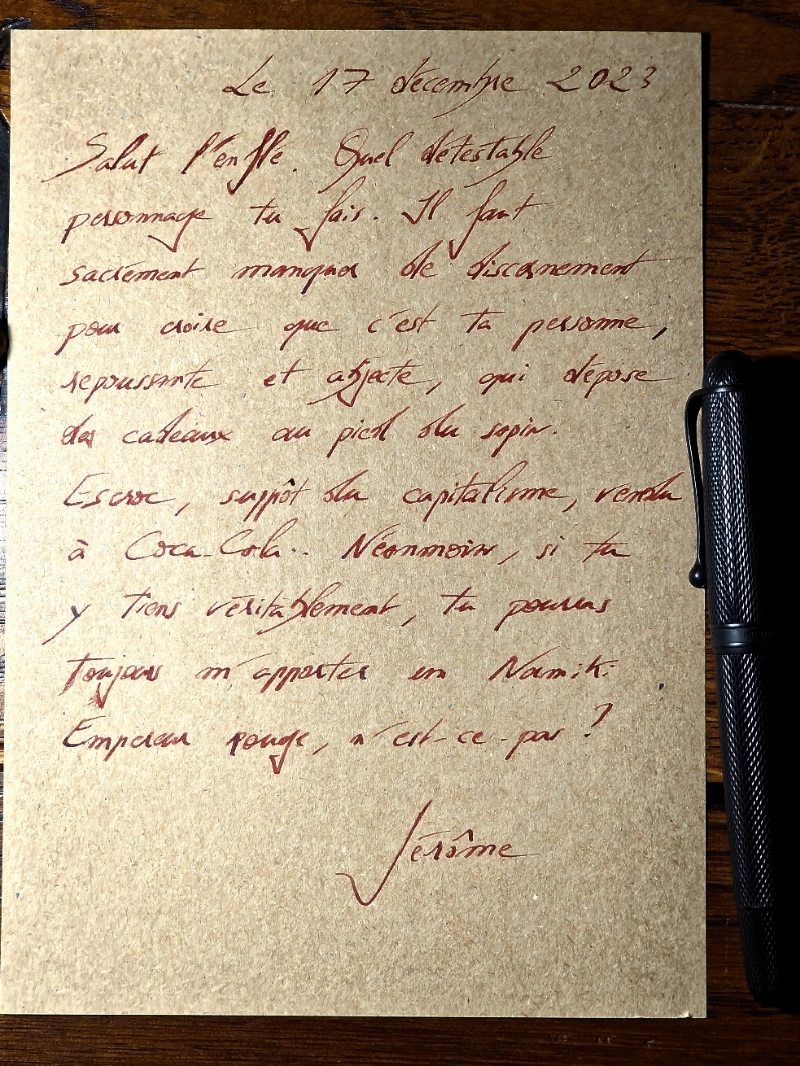 Le 17 décembre 2023
Salut l'enflé. Quel détestable
personnage tu fais. Il faut
sacrément manquer de discernement
pour croire que c'est ta personne,
repoussante et abjecte, qui dépose
des cadeaux au pied du sapin.
Escroc, suppôt du capitalisme, vendu
à Coca-Cola.. Néanmoins, si tu
y tiens véritablement, tu pourras
toujours m'apporter un Namiki
Empereur rouge, n'est-ce-pas ?
Jérôme